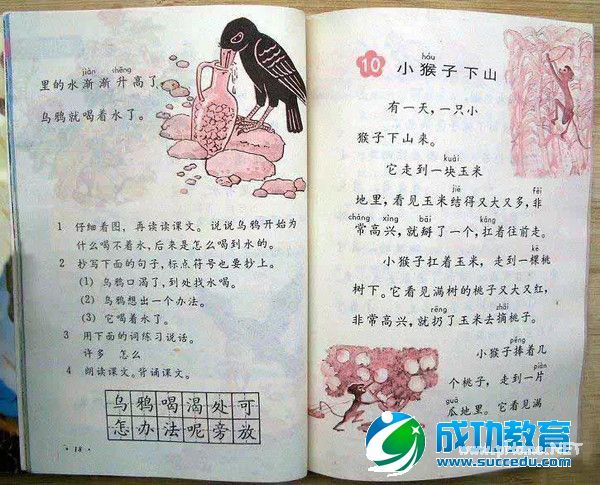 jiàn shēng
里的水渐渐升高了,
乌鸦就喝着水了。
1 仔细看图,再读读课文。说说乌鸦开始为
什么喝不着水,后来是怎么喝到水的。
2 抄写下面的句子,标点符号也要抄上。
(1) 乌鸦口渴了,到处找水喝。
(2) 乌鸦想出一个办法。
(3) 它喝着水了。
3 用下面的词练习说话。
许多 怎么
4 朗读课文。背诵课文。
乌鸦喝渴处可
怎办法呢旁放
·18·
hóu
10 小猴子下山
有一天,一只小
猴子下山来。
kuài
它走到一块玉米
jiē fēi
地里,看见玉米结得又大又多,非
cháng xìng bāi káng
常高兴,就掰了一个,扛着往前走。
kē
小猴子扛着玉米,走到一棵桃
树下。它看见满树的桃子又大又红,
rēng zhāi
非常高兴,就扔了玉米去摘桃子。
pěng
小猴子捧着几
piàn
个桃子,走到一片
guā
瓜地里。它看见满
成功教育
www.succedu.com